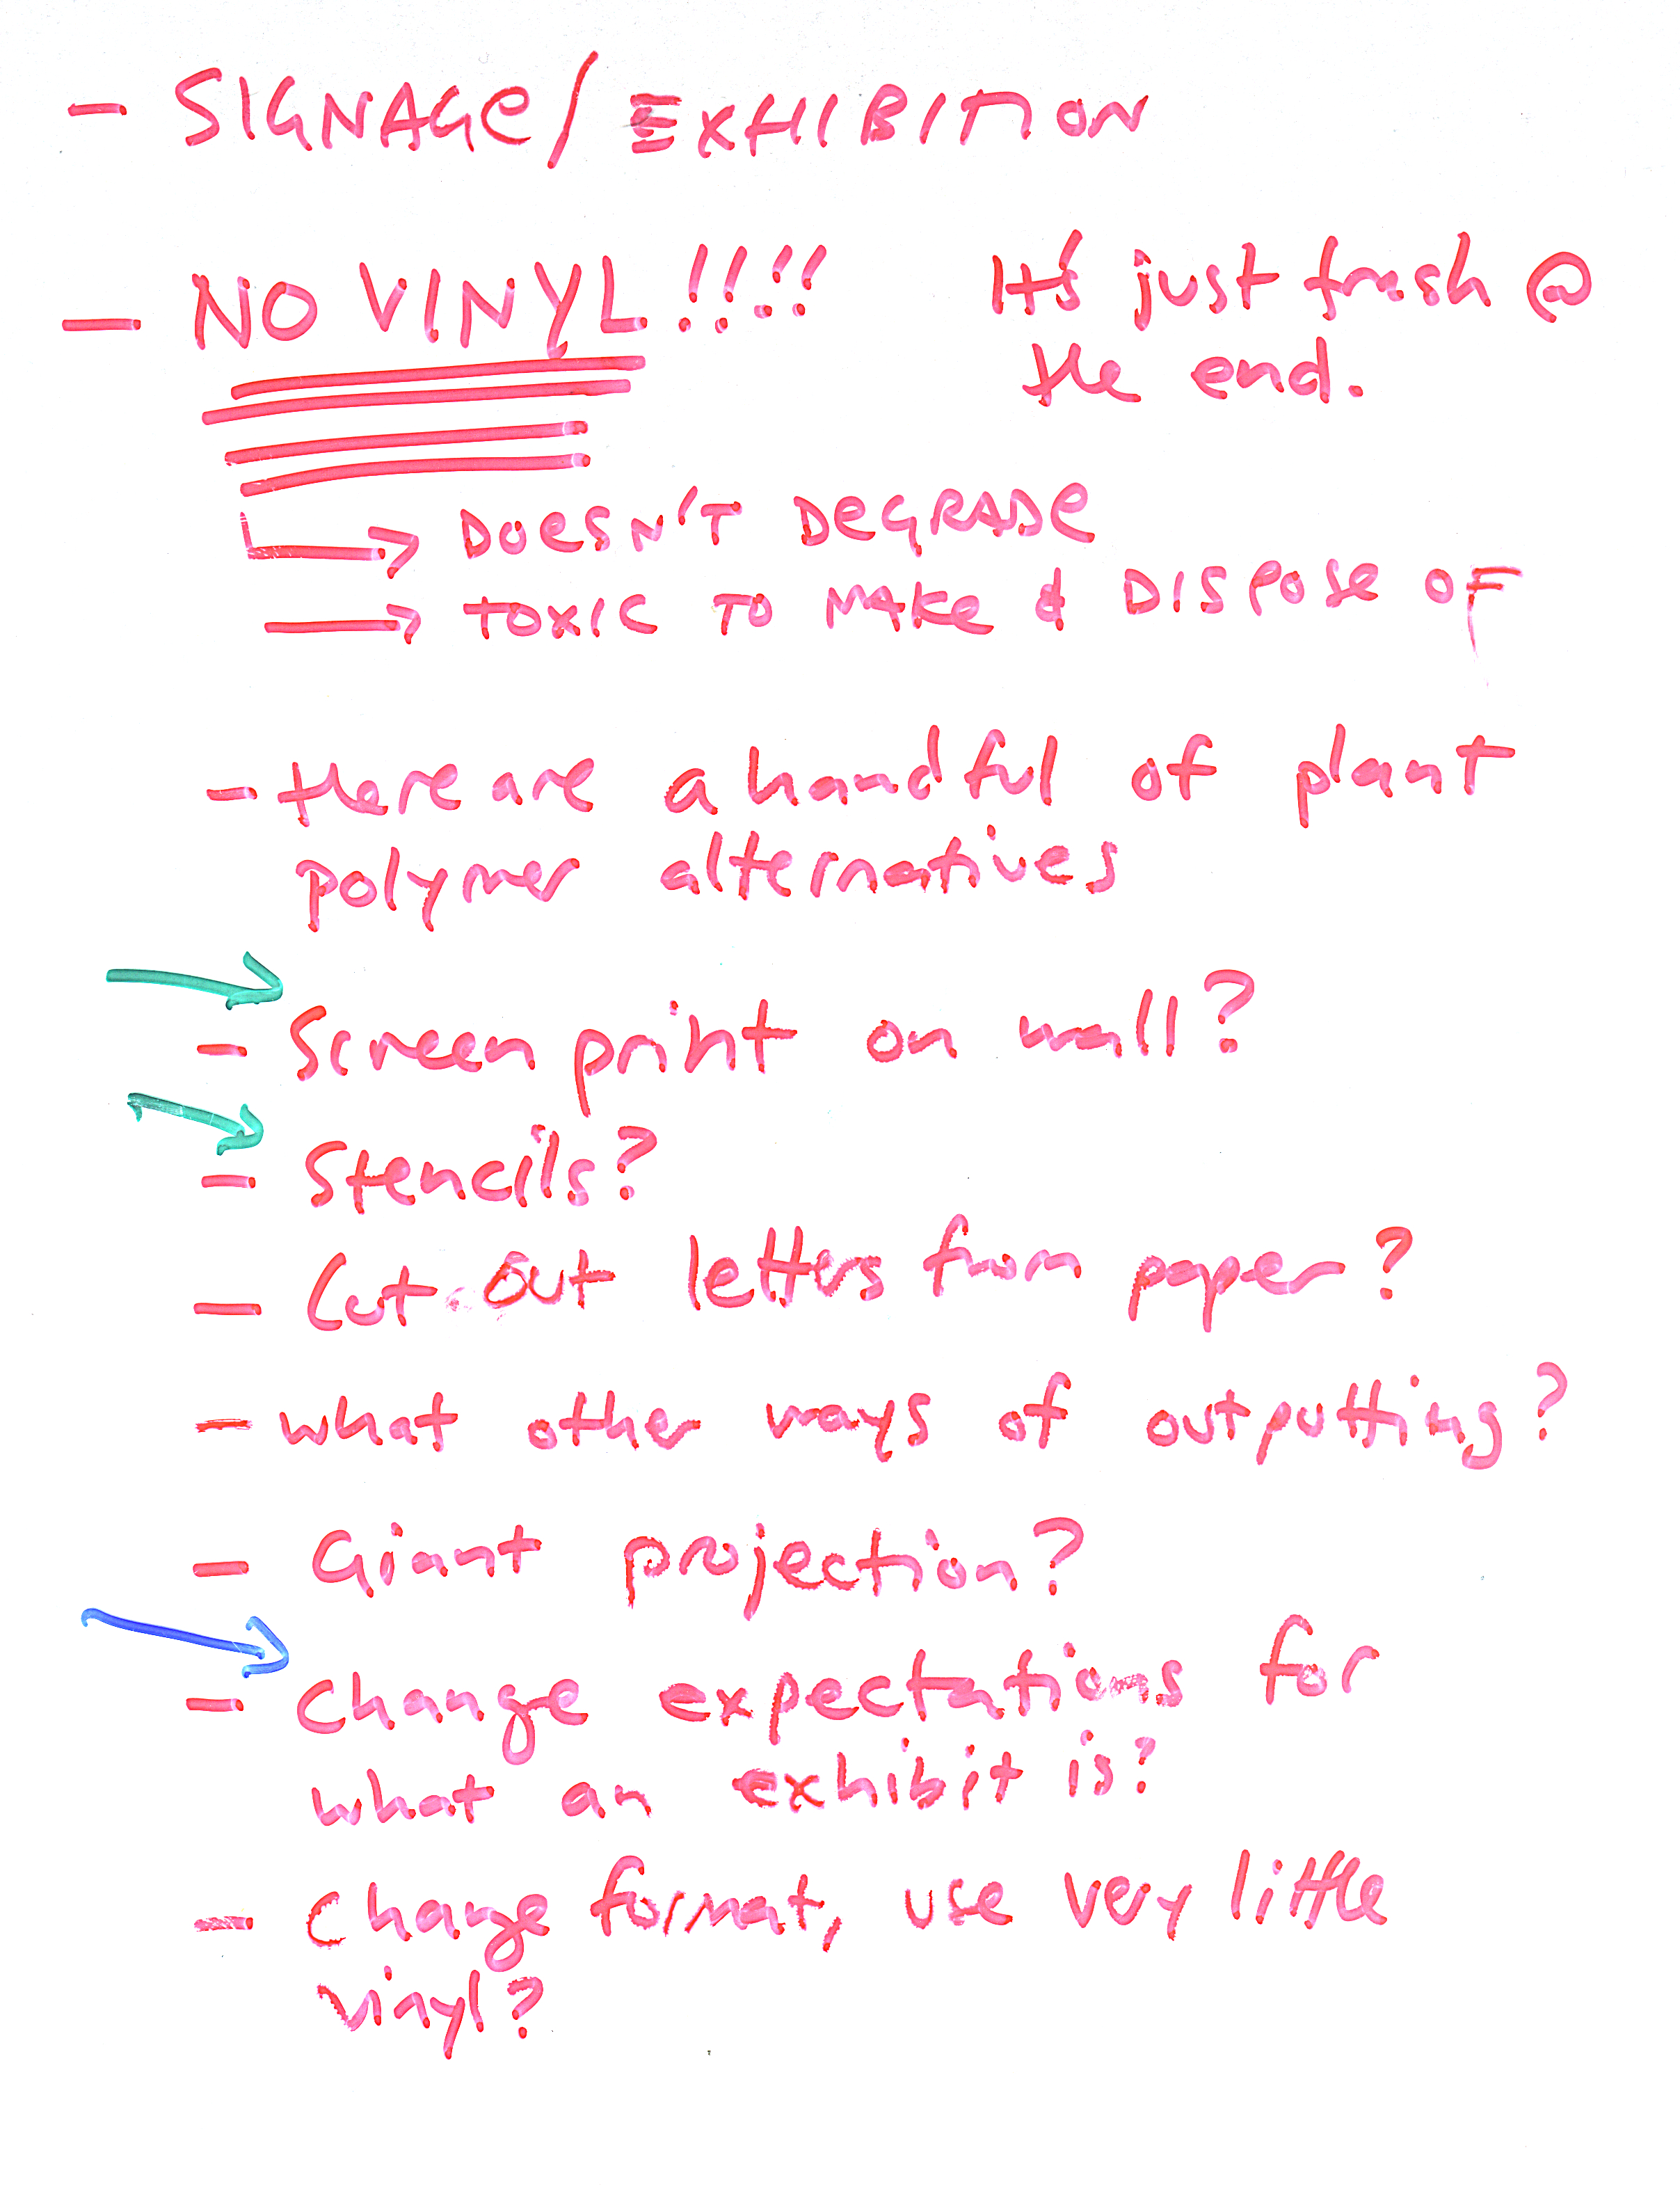 - SIGNAGE / EXHIBITION
- NO VINYL!!!!
It's just trash @
the end.
→ DOESN'T DEGRADE
→ TOXIC TO MAKE & DISPOSE OF
- there are a handful of plant
polymer alternatives
- Screen print on wall?
- Stencils?
- Cut out letters from paper?
- what other ways of outputting?
- Giant projection?
- Change expectations for
what an exhibit is?
- Change format, use very little
vinyl?